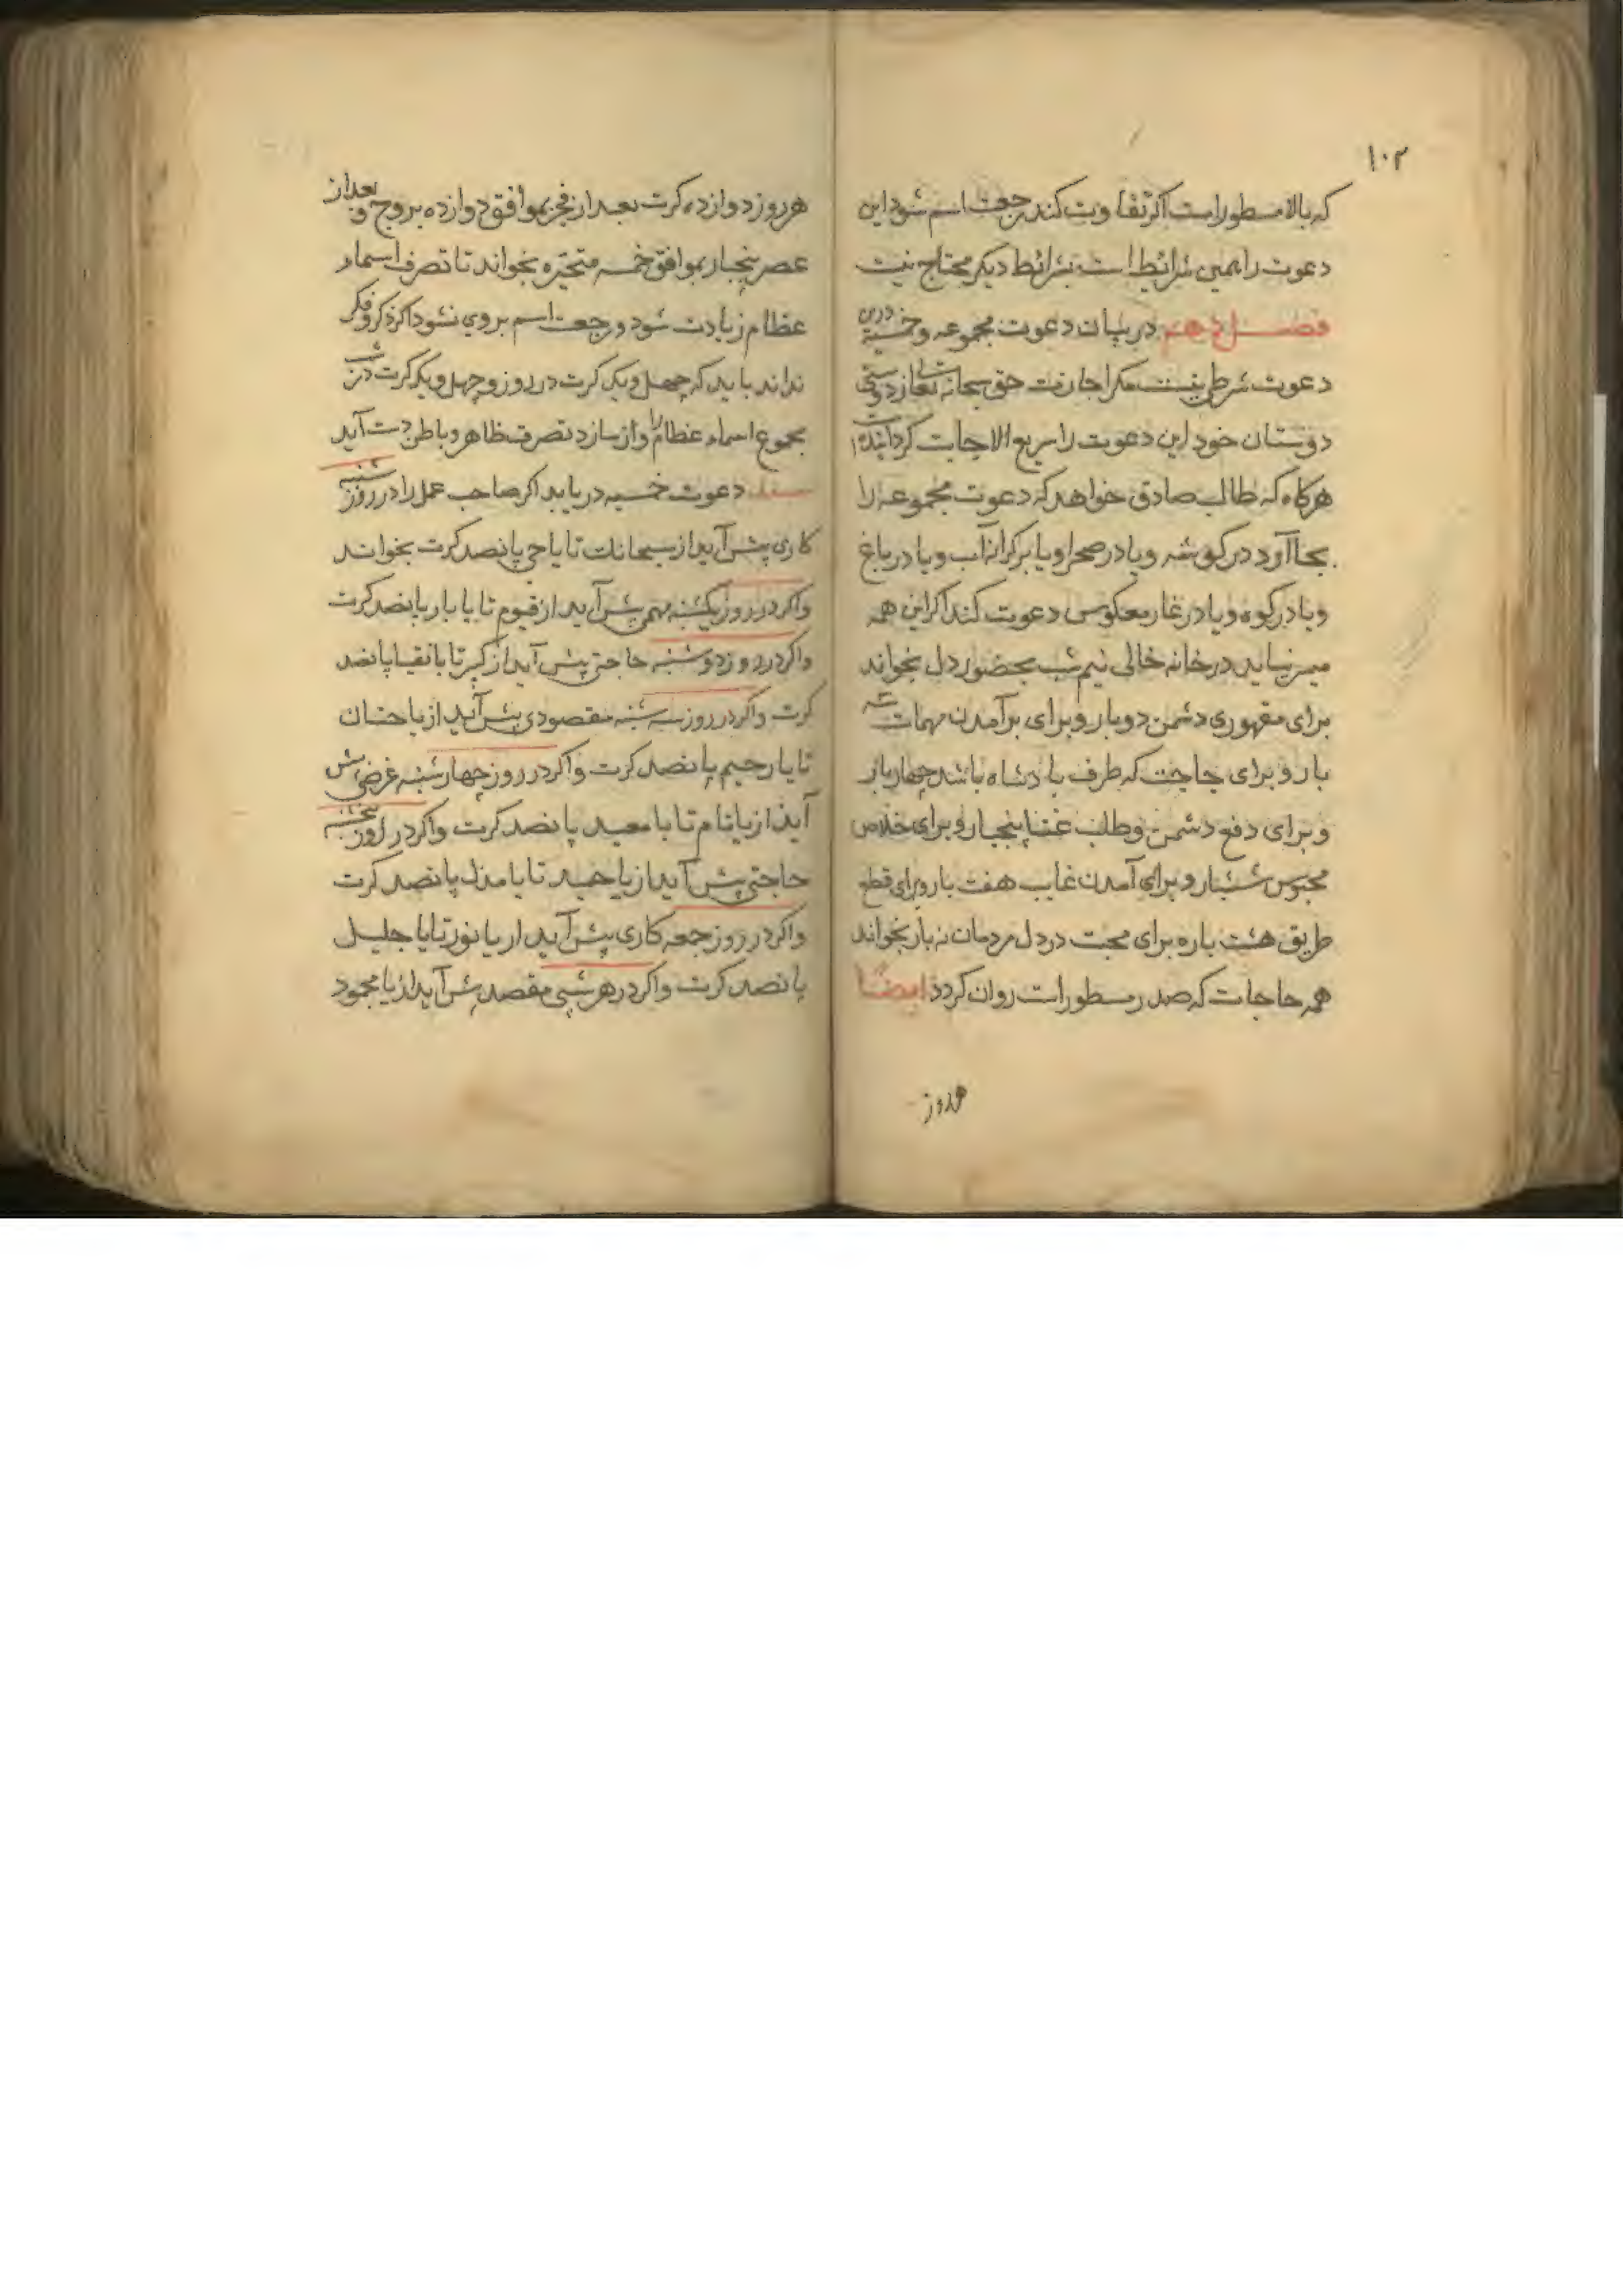 ۱۰۲
که بالا مسطور است اکر تفاوت کند رجعت اسم شود این
دعوت را همین شرائط است بشرائط دیکر محتاج نیست
فصل دهم در بیان دعوت مجموعه و خمسیه درین
دعوت شرطی نیست مکر اجازت حق سبحانه تعالی از دوستی
دوستان خود این دعوت را سریع الاجابت کردانیده است
هرکاه که طالب صادق خواهد که دعوت مجموعه را
بجا آرد در کوشه و یا در صحرا و یا بر کرانه آب و یا در باغ
و یا در کوه و یا در غار معکوس دعوت کند اکر این همه
میسر نیاید در خانه خالی نیم شب بحضور دل بخواند
برای مقهوری دشمن دو بار و برای برآمدن مهمات سه
بار و برای حاجت که طرف پادشاه باشد چهار بار
و برای دفع دشمن و طلب غنا پنجبار و برای خلاص
محبوس ششبار و برای آمدن غایب هفت بار و برای قطع
طریق هشت باره برای محبت در دل مردمان نه بار بخواند
همه حاجات که صدر مسطور است روان کردد ایضا
هرروز
هر روز دوازده کرت بعد از فجر بموافق دوازده بروج و بعد از
عصر پنجبار بموافق خمسه متحیره بخواند تا تصرف اسماء
عظام زیادت شود و رجعت اسم بروی نشود اکر ذکر و فکر
نداند باید که چهل و یک کرت در روز و چهل و یک کرت در شب
مجموع اسماء عظام را وازسازد تصرف ظاهر و باطن دست آید
دعوت خمسیه دریابد اکر صاحب عمل را در روز شنبه
کاری پیش آید از سبحانک تا یا حی پانصد کرت بخواند
و اکر در روز یکشنبه مهمی پیش آید از قیوم تا یا بار پانصد کرت
و اکر در روز دوشنبه حاجتی پیش آید از کبیر تا یا نقیا پانصد
کرت و اکر در روز سه شنبه مقصودی پیش آید از یا حنان
تا یا رحیم پانصد کرت و اکر در روز چهارشنبه غرضی پیش
آید از یا تام تا یا معید پانصد کرت و اکر در روز پنجشنبه
حاجتی پیش آید از یا حمید تا یا مذل پانصد کرت
و اکر در روز جمعه کاری پیش آید از یا نور تا یا جلیل
پانصد کرت و اکر در هر شبی مقصد پیش آید از یا محمود